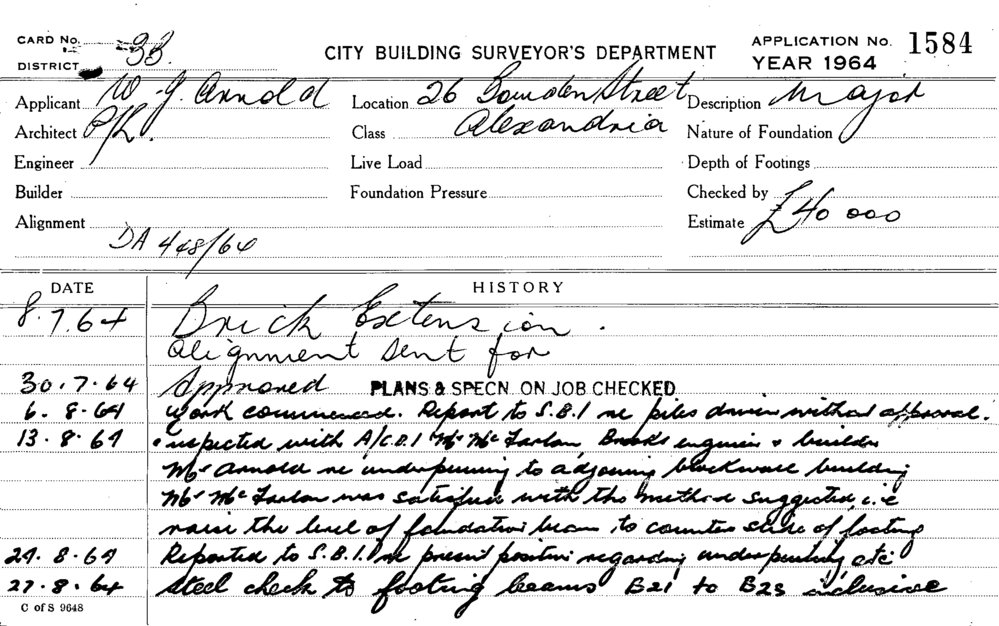 CARD No. 3B.
DISTRICT
CITY BUILDING SURVEYOR'S DEPARTMENT
APPLICATION No. 1584
YEAR 1964
Applicant W. J. Arnold
Location 26 Bowden Street
Description Major
Architect P/L.
Class Alexandria
Nature of Foundation
Engineer
Live Load
Depth of Footings
Builder
Foundation Pressure
Checked by
Alignment
Estimate £40 000
DA 448/64
DATE HISTORY
8.7.64 Brick Extension.
Alignment sent for
30.7.64 Approved PLANS & SPECN. ON JOB CHECKED
6.8.64 Work commenced. Report to S.B.I re piles driven without approval.
13.8.64 Inspected with A/C.B.I Mr McFarlan, Brooks engineer & builder
Mr Arnold re underpinning to adjoining blockwall building
Mr McFarlan was satisfied with the method suggested i.e
raise the level of foundation beam to counter slide of footing
24.8.64 Reported to S.B.I. re present position regarding underpinning etc
27.8.64 Steel check to footing beams B21 to B23 inclusive
C of S 9648